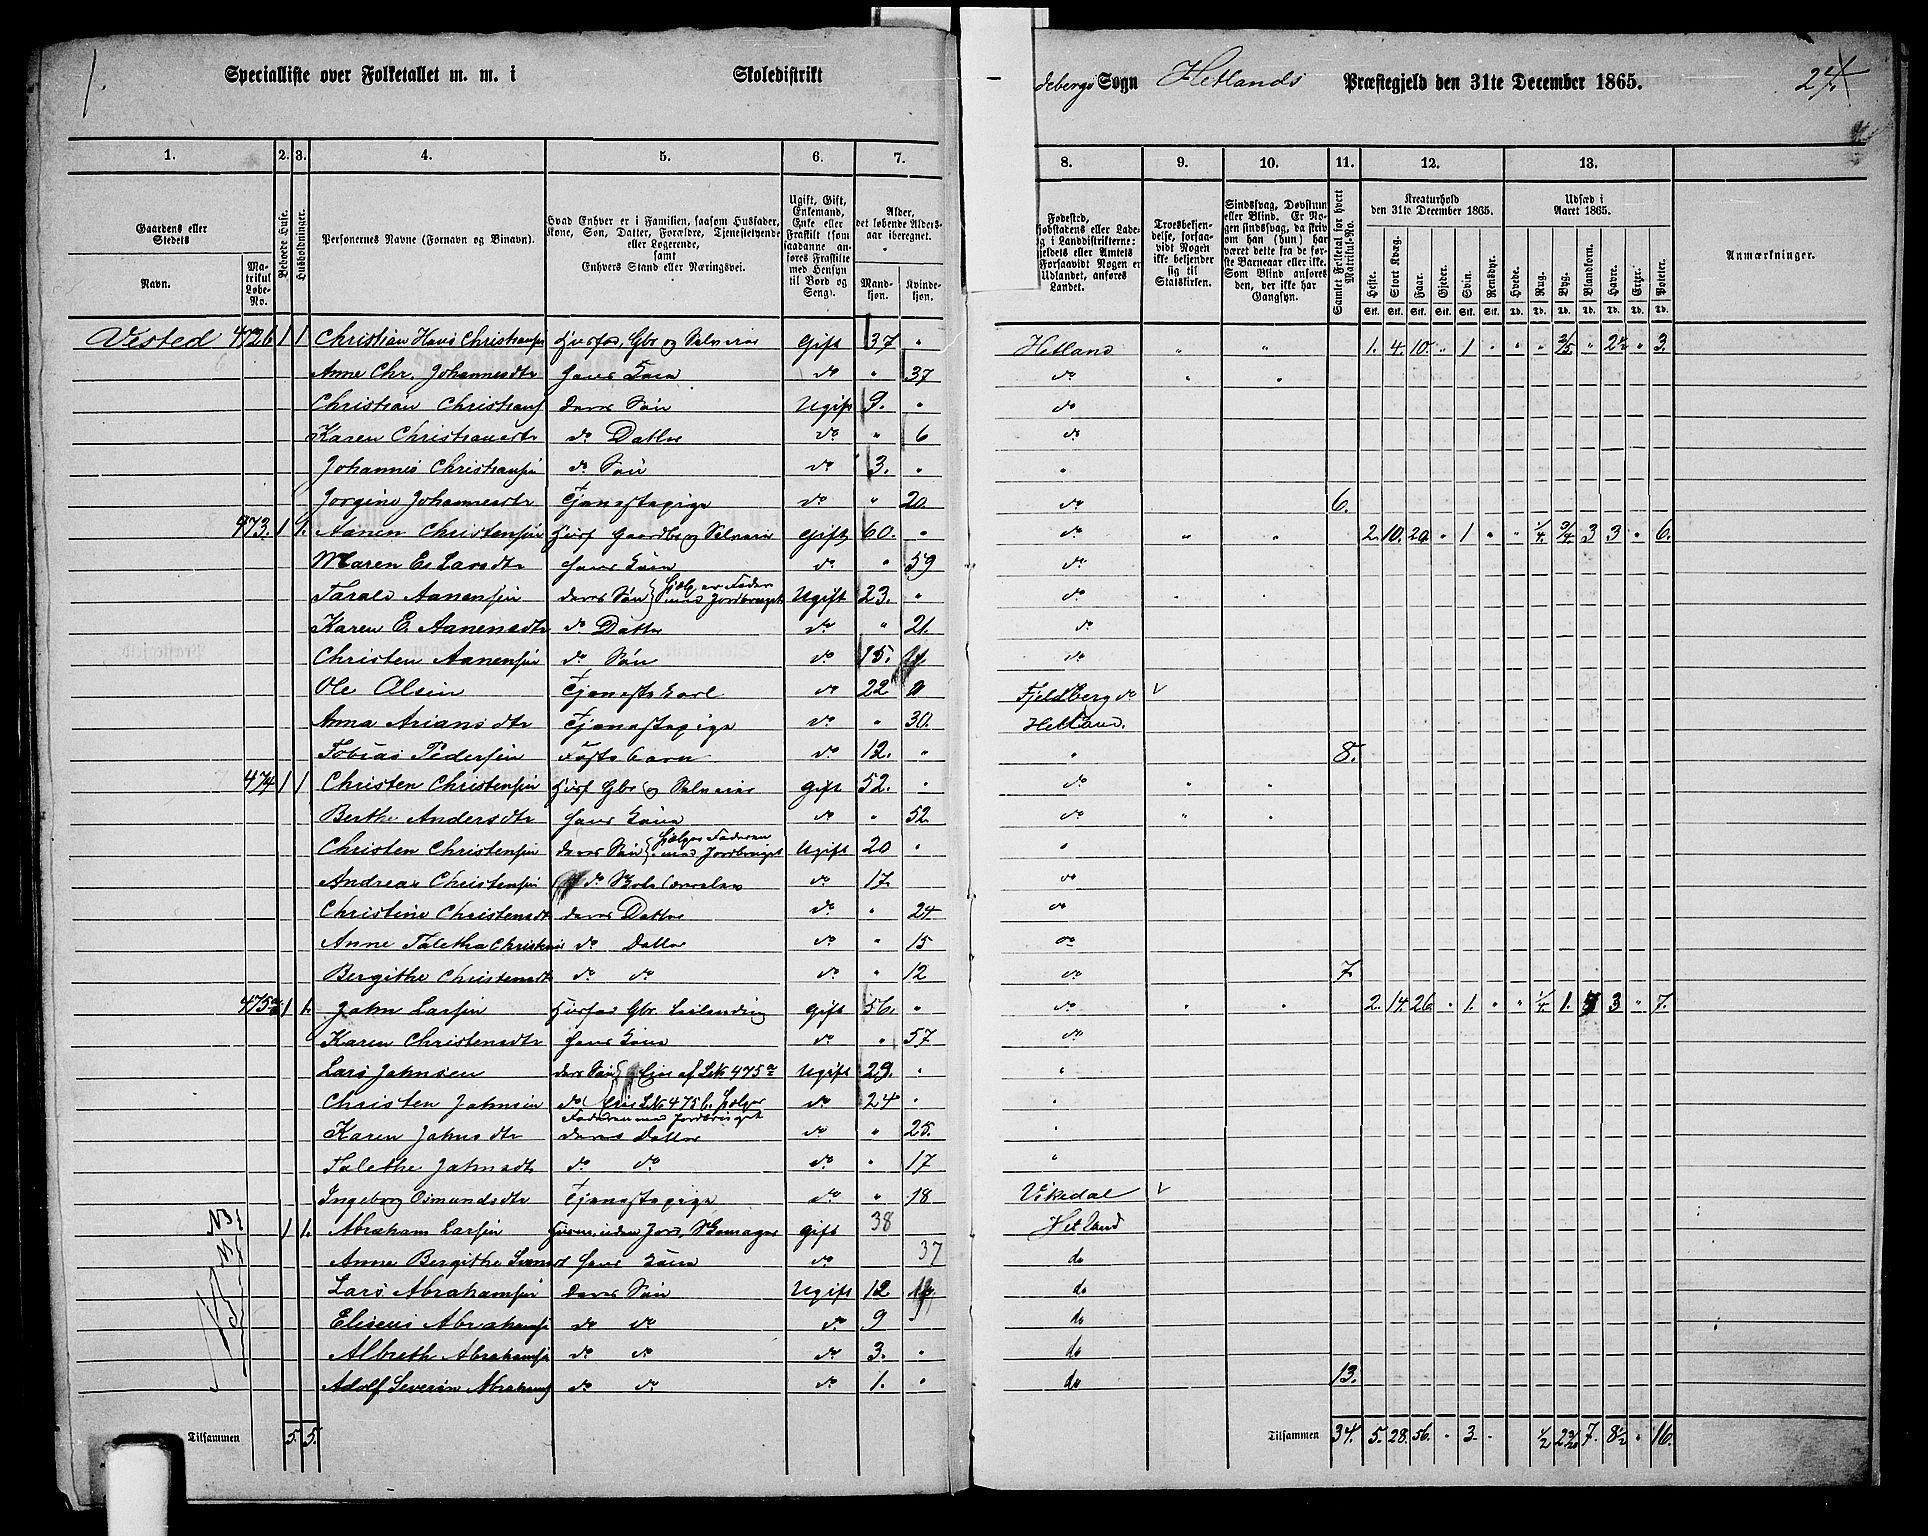 1.
Specialliste over Folketallet m. m. i Skoledistrikt
debergs Sogn Hetlands Præstegjeld den 31te December 1865. 24
1. 2. 3. 4. 5. 6. 7.
8. 9. 10. 11. 12. 13.
Gaardens eller Stedets
Navn.
Matrikul Løbe-No.
Beboede Huse.
Husholdninger.
Personernes Navne (Fornavn og Binavn).
Hvad Enhver er i Familien, saasom Husfader, Kone, Søn, Datter, Forældre, Tjenestetyende eller Logerende,
samt
Enhvers Stand eller Næringsvei.
Ugift, Gift, Enkemand, Enke eller Fraskilt (som saadanne anføres Fraskilte med Hensyn til Bord og Seng).
Alder, det løbende Aldersaar iberegnet.
Mandkjøn.
Kvindekjøn.
Troesbekjendelse, forsaavidt Nogen ikke bekjender sig til Statskirken.
Sindssvag, Døvstum eller Blind. Er Nogen sindssvag, da skriv om han (hun) har været dette fra de første Barneaar eller ikke. Som Blind anføres den, der ikke har Gangsyn.
Samlet Folketal for hvert Matrikul-No.
Kreaturhold
den 31te December 1865.
Heste. Stort Kvæg. Faar. Gjeder. Sviin. Rensdyr.
Stk. Stk. Stk. Stk. Stk. Stk.
Udsæd i
Aaret 1865.
Hvede. Rug. Byg. Blandkorn. Havre. Erter. Poteter.
Td. Td. Td. Td. Td. Td. Td.
Anmærkninger.
Vested 472b 1 1 Christian Hans Christians Husfad, Gbr og Selveier Gift 37 " Hetland " " 1. 4. 10. " 1 " " " 2/5 " 2½ " 3.
Anne Chr. Johannesdtr Hans Kone do " 37 do " "
Christian Christians deres Søn Ugift 9. " do
Karen Christiansdtr do Datter do " 6 do
Johannes Christiansen do Søn do 3. " "
Jorgine Johannesdtr Tjenestepige do " 20 do 6.
473. 1 1. Aanen Christensen Husf Gaardbr og Selveier Gift 60. " do " " 2. 10. 20 " 1 " " ¼ ¾ 3 3 " 6.
Maren E. Larsdtr Hans Kone do " 59 do
Tarald Aanensen deres Søn { hjælper Faderen med Jordbruget Ugift 23. " do
Karen E. Aanensdtr do Datter do " 21. do
Christen Aanensen do Søn do 15. do
Ole Olsen Tjenestekarl do 22 Fjeldberg do V
Anna Ariansdtr Tjenestepige do " 30. Hetland.
Tobias Pedersen Fosterbarn do 12. " " 8.
474 1 1 Christen Christensen Husf Gbr og Selveier gift 52. " do " "
Berthe Andersdtr Hans Kone do " 52 do " "
Christen Christensen deres Søn { hjælper Faderen med Jordbruget Ugift 20 " "
Andreas Christensen do Skolelærerelev do 17. do
Christine Christensdtr deres Datter do " 24 do
Anne Taletha Christens do Datter do " 15 do
Bergithe Christensdtr do do do " 12 do 7
475a 1 1. John Larsen Husfad Gbr Leilending gift 56. " do " " 2. 14. 26. " 1. " " ¼ 1. 4 3 " 7.
Karen Christensdtr Hans Kone do " 57 do
Lars Johnsen deres Søn Eier af Lb 475a Ugift 29. " "
Christen Johnsen do Eier Lb 475b. hjælper Faderen med Jordbruget do 24 " "
Karen Johnsdtr deres Datter do " 25. "
Talethe Johnsdtr do do do " 17 "
Ingeborg Osmundsdtr Tjenestepige do " 18 Vikedal V
NB 1 1. Abraham Larsen Husm. uden Jord, Skomager gift 38 Hetland
Anne Bergithe Hans Kone do 37 do
Lars Abrahamsen deres Søn Ugift 12 do
Eliseus Abrahamsen do do do 9 " do
Albreth Abrahamsen do do do 3. " do
Adolf Severin Abrahams do do do 1. " do 13.
Tilsammen 5. 5.
Tilsammen 34. 5. 28. 56. " 3. " ½ 7. 8½ " 16.